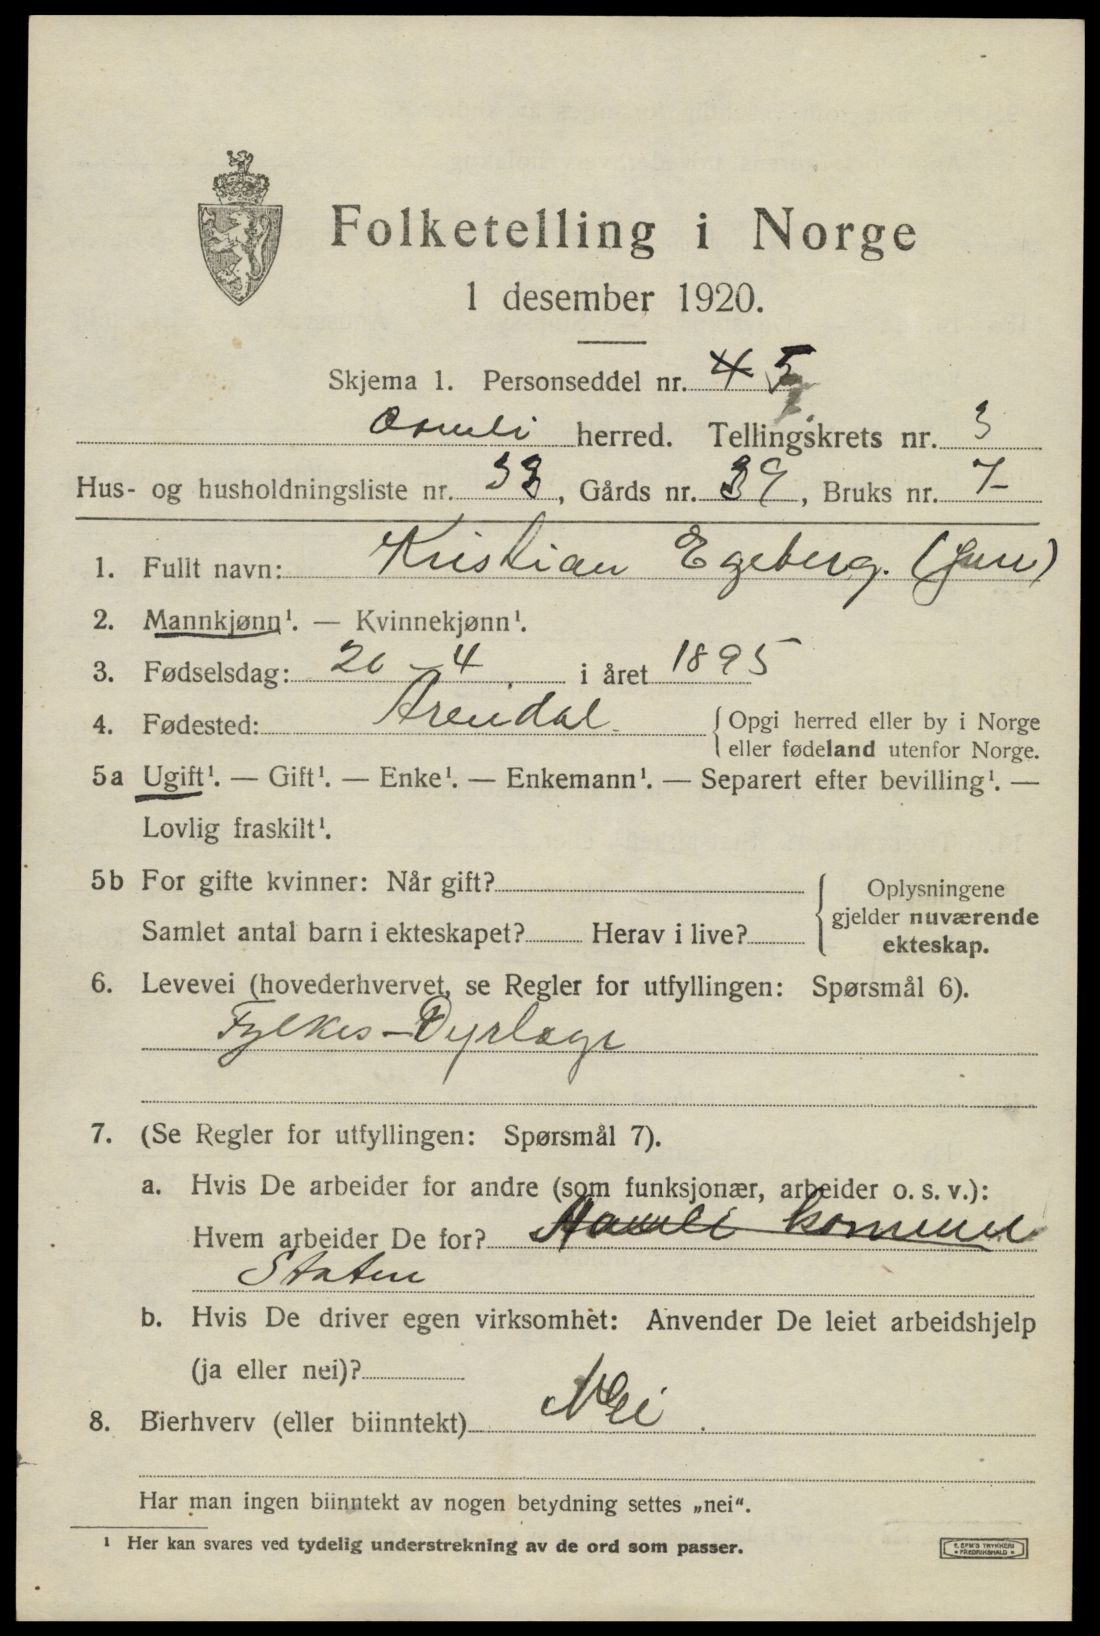 Folketelling i Norge
1 desember 1920.
Skjema 1. Personseddel nr. 4 5
herred. Tellingskrets nr. 3
Hus- og husholdningsliste nr. 33, Gårds nr. 39, Bruks nr. 7
1. Fullt navn: Kristian Egeberg. (Jun)
2. Mannkjønn¹. — Kvinnekjønn¹.
3. Fødselsdag: 20-4. i året 1895
4. Fødested: Arendal. { Opgi herred eller by i Norge
eller fødeland utenfor Norge.
5a Ugift¹. — Gift¹. — Enke¹. — Enkemann¹. — Separert efter bevilling¹. —
Lovlig fraskilt¹.
5b For gifte kvinner: Når gift?
Samlet antal barn i ekteskapet? Herav i live?
{ Oplysningene
gjelder nuværende
ekteskap.
6. Levevei (hovederhvervet, se Regler for utfyllingen: Spørsmål 6).
Fylkes-Dyrlæge
7. (Se Regler for utfyllingen: Spørsmål 7).
a. Hvis De arbeider for andre (som funksjonær, arbeider o. s. v.):
Hvem arbeider De for? kommune
Staten
b. Hvis De driver egen virksomhet: Anvender De leiet arbeidshjelp
(ja eller nei)?
8. Bierhverv (eller biinntekt) Nei
Har man ingen biinntekt av nogen betydning settes „nei“.
¹ Her kan svares ved tydelig understrekning av de ord som passer.
E. SEM'S TRYKKERI
• FREDRIKSHALD •